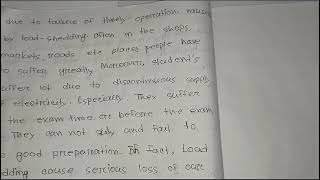 due to failure of timely operation. causes
by load-shedding often in the shops,
markets, roads etc places people have
to suffers greatly. Moreover, student's
suffers lot due to discontinuous supply
of electricity. Especially They suffer
the exam time or before the exam
They can not study and fail to
good preparation In fact, Load
dding cause serious loss of our